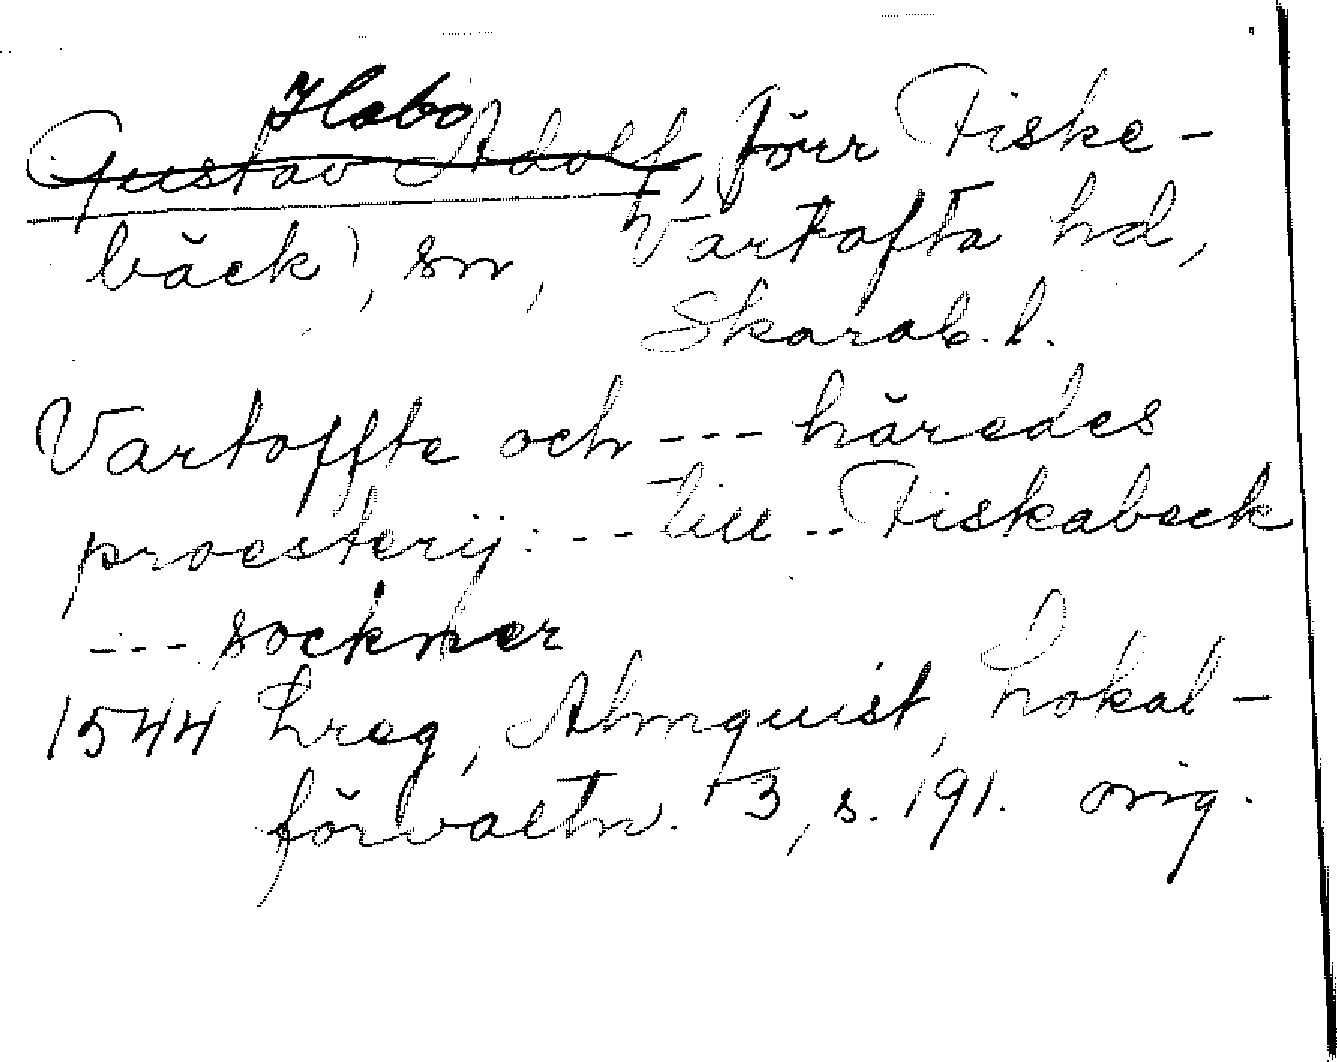 Habo
Gustav Adolf, (förr Fiske-
bäck), sn, Vartofta hd,
Skarab. l.
Vartoffte och --- häredes
proesterij: --- till -- Fiskabeck
--- socknker
1544 hreg, Almquist, Lokal-
förvaltn. 3, s. 191. orig.